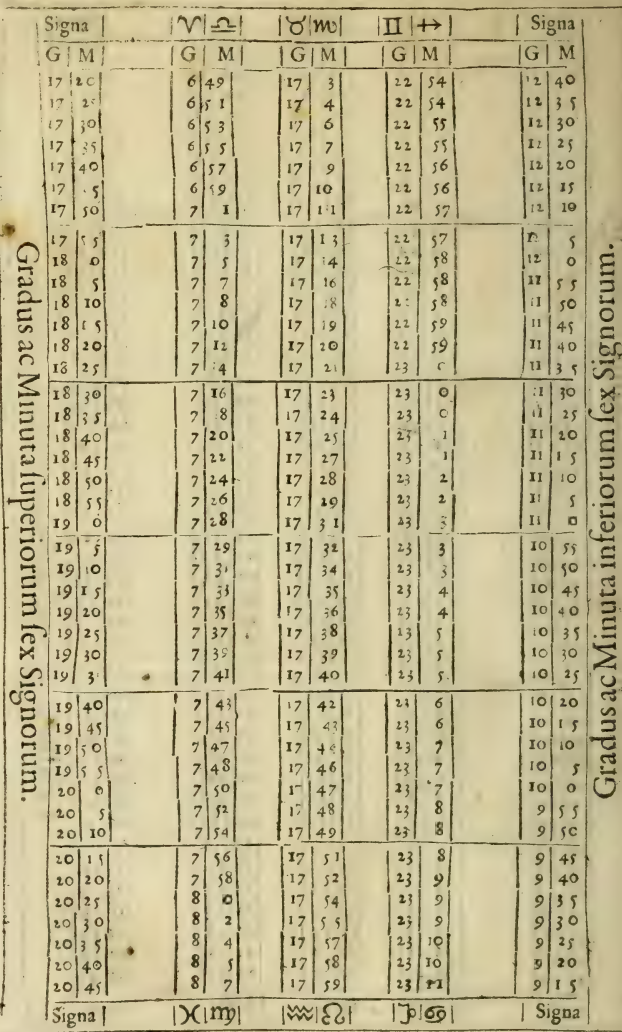 Signa | ♈ | ♎ | ♉ | ♏ | ♊ | ♐ | Signa
G | M | G | M | G | M | G | M | G | M
17 20 6 49 17 3 22 54 12 40
17 25 6 51 17 4 22 54 12 35
17 30 6 53 17 6 22 55 12 30
17 35 6 55 17 7 22 55 12 25
17 40 6 57 17 9 22 56 12 20
17 5 6 59 17 10 22 56 12 15
17 50 7 1 17 11 22 57 12 10
17 55 7 3 17 13 22 57 12 5
18 0 7 5 17 14 22 58 12 0
18 5 7 7 17 16 22 58 11 55
18 10 7 8 17 18 22 58 11 50
18 15 7 10 17 19 22 59 11 45
18 20 7 12 17 20 22 59 11 40
18 25 7 4 17 21 23 0 11 35
18 30 7 16 17 23 23 0 11 30
18 35 7 8 17 24 23 0 11 25
18 40 7 20 17 25 23 1 11 20
18 45 7 22 17 27 23 1 11 15
18 50 7 24 17 28 23 2 11 10
18 55 7 26 17 29 23 2 11 5
19 0 7 28 17 31 23 3 11 0
19 5 7 29 17 32 23 3 10 55
19 10 7 31 17 34 23 3 10 50
19 15 7 33 17 35 23 4 10 45
19 20 7 35 17 36 23 4 10 40
19 25 7 37 17 38 23 5 10 35
19 30 7 39 17 39 23 5 10 30
19 3 7 41 17 40 23 5 10 25
19 40 7 43 17 42 23 6 10 20
19 45 7 45 17 43 23 6 10 15
19 50 7 47 17 44 23 7 10 10
19 55 7 48 17 46 23 7 10 5
20 0 7 50 17 47 23 7 10 0
20 5 7 52 17 48 23 8 9 55
20 10 7 54 17 49 23 8 9 50
20 15 7 56 17 51 23 8 9 45
20 20 7 58 17 52 23 9 9 40
20 25 8 0 17 54 23 9 9 35
20 30 8 2 17 55 23 9 9 30
20 35 8 4 17 57 23 10 9 25
20 40 8 5 17 58 23 10 9 20
20 45 8 7 17 59 23 11 9 15
Signa | ♓ | ♍ | ♒ | ♌ | ♑ | ♋ | Signa
Gradus ac Minuta ſuperiorum ſex Signorum.
Gradus ac Minuta inferiorum ſex Signorum.